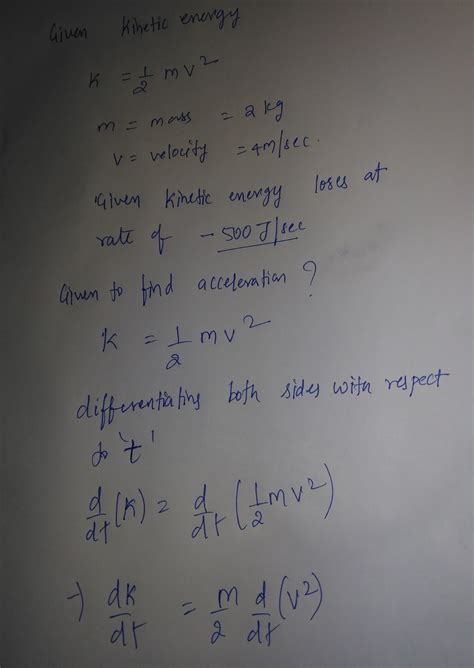 Given Kinetic energy
K = 1/2 mv²
m = mass = 2kg
v = velocity = 4m/sec.
Given kinetic energy loses at
rate of - 500 J/sec
Given to find acceleration ?
K = 1/2 mv²
differentiating both sides with respect
to 't'
d/dt (K) = d/dt (1/2 mv²)
→ dK/dt = m/2 d/dt (v²)